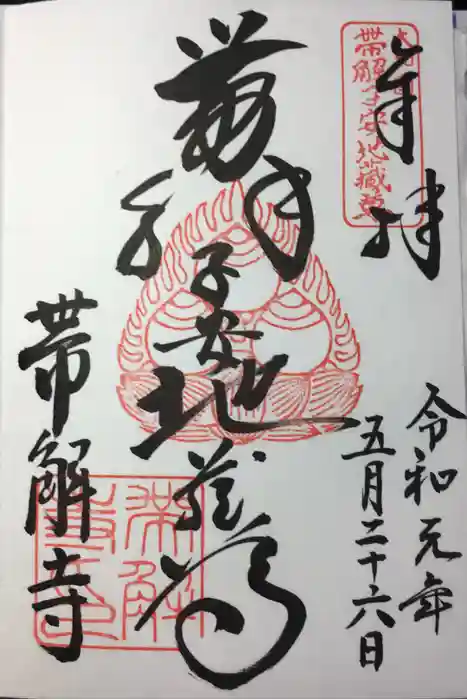 奉拝
令和元年
五月二十六日
帯解子安地蔵尊
帯解寺
帯解子安地藏尊
帯解
寺印